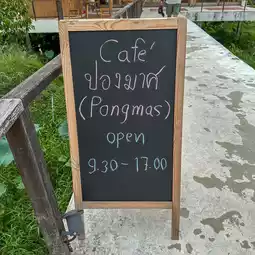 Café
ปองมาศ
(Pongmas)
open
9.30 - 17.00